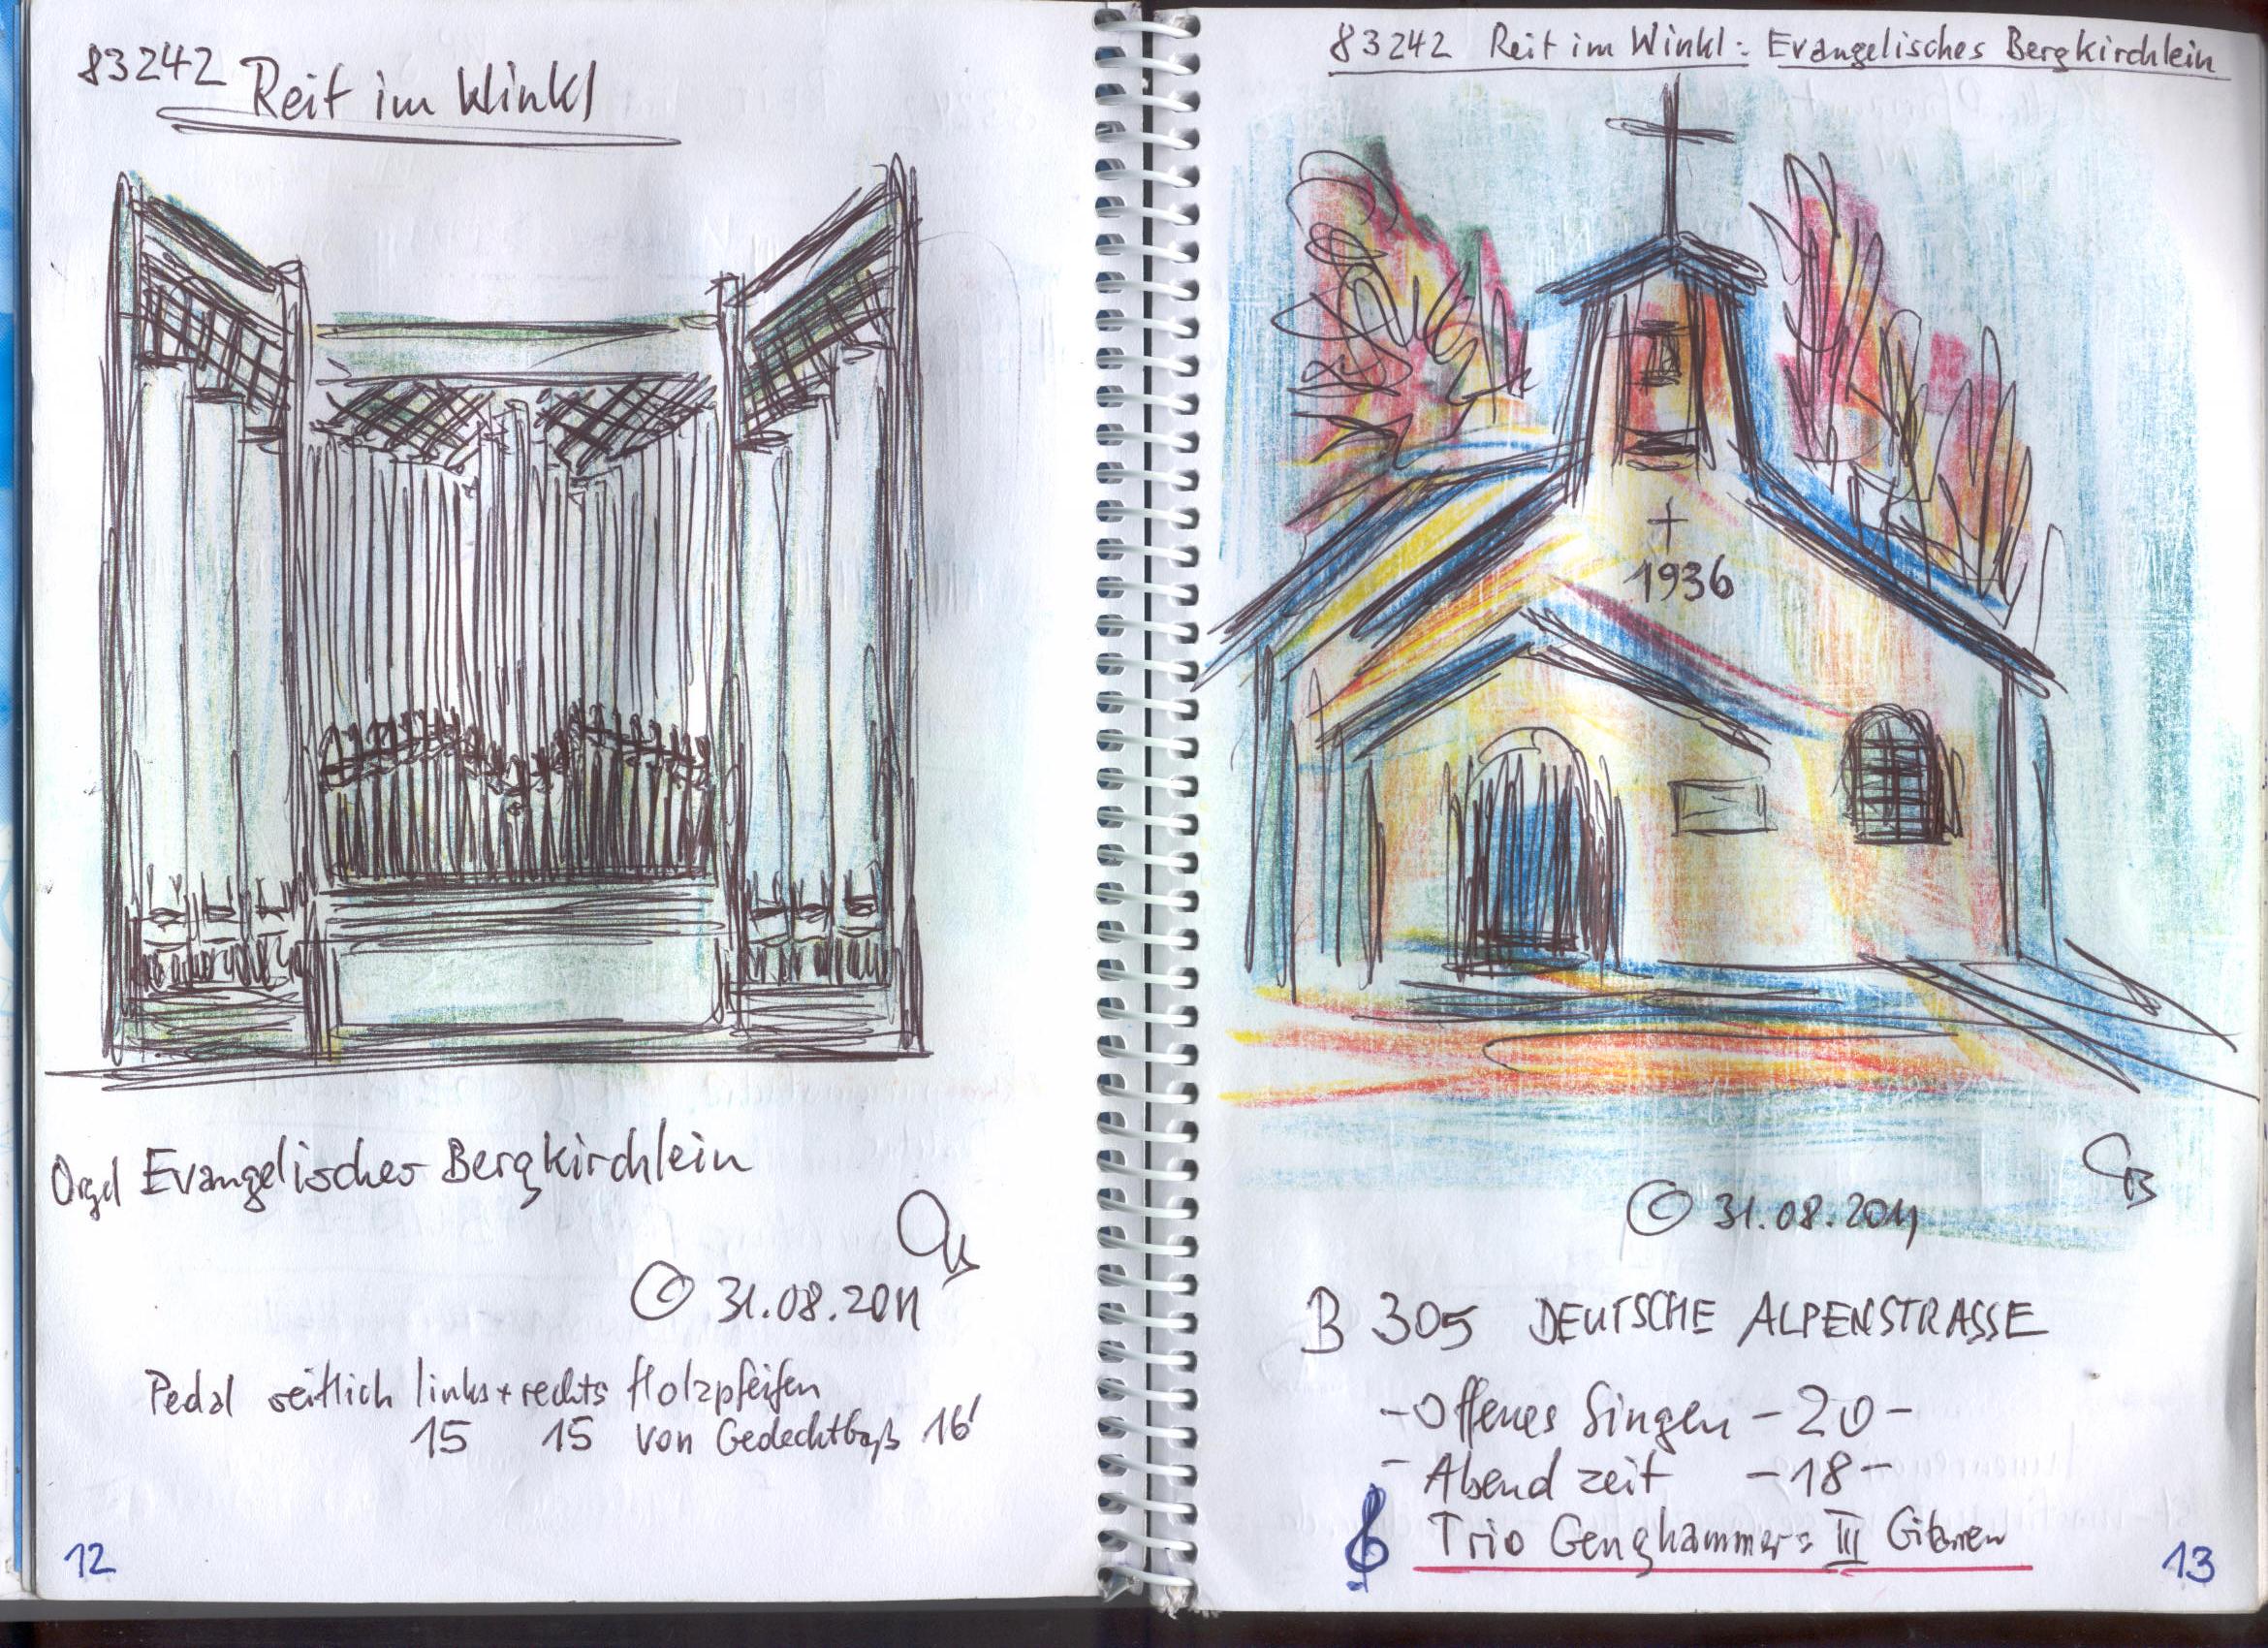 83242 Reit im Winkl
Orgel Evangelisches Bergkirchlein
© 31.08.2011
Pedal seitlich links + rechts Holzpfeifen
15 15 von Gedecktbaß 16'
12
83242 Reit im Winkl: Evangelisches Bergkirchlein
1936
CB
© 31.08.2011
B 305 DEUTSCHE ALPENSTRASSE
- Offenes Singen - 20 -
- Abendzeit - 18 -
Trio Genghammer = III Gitarren
13